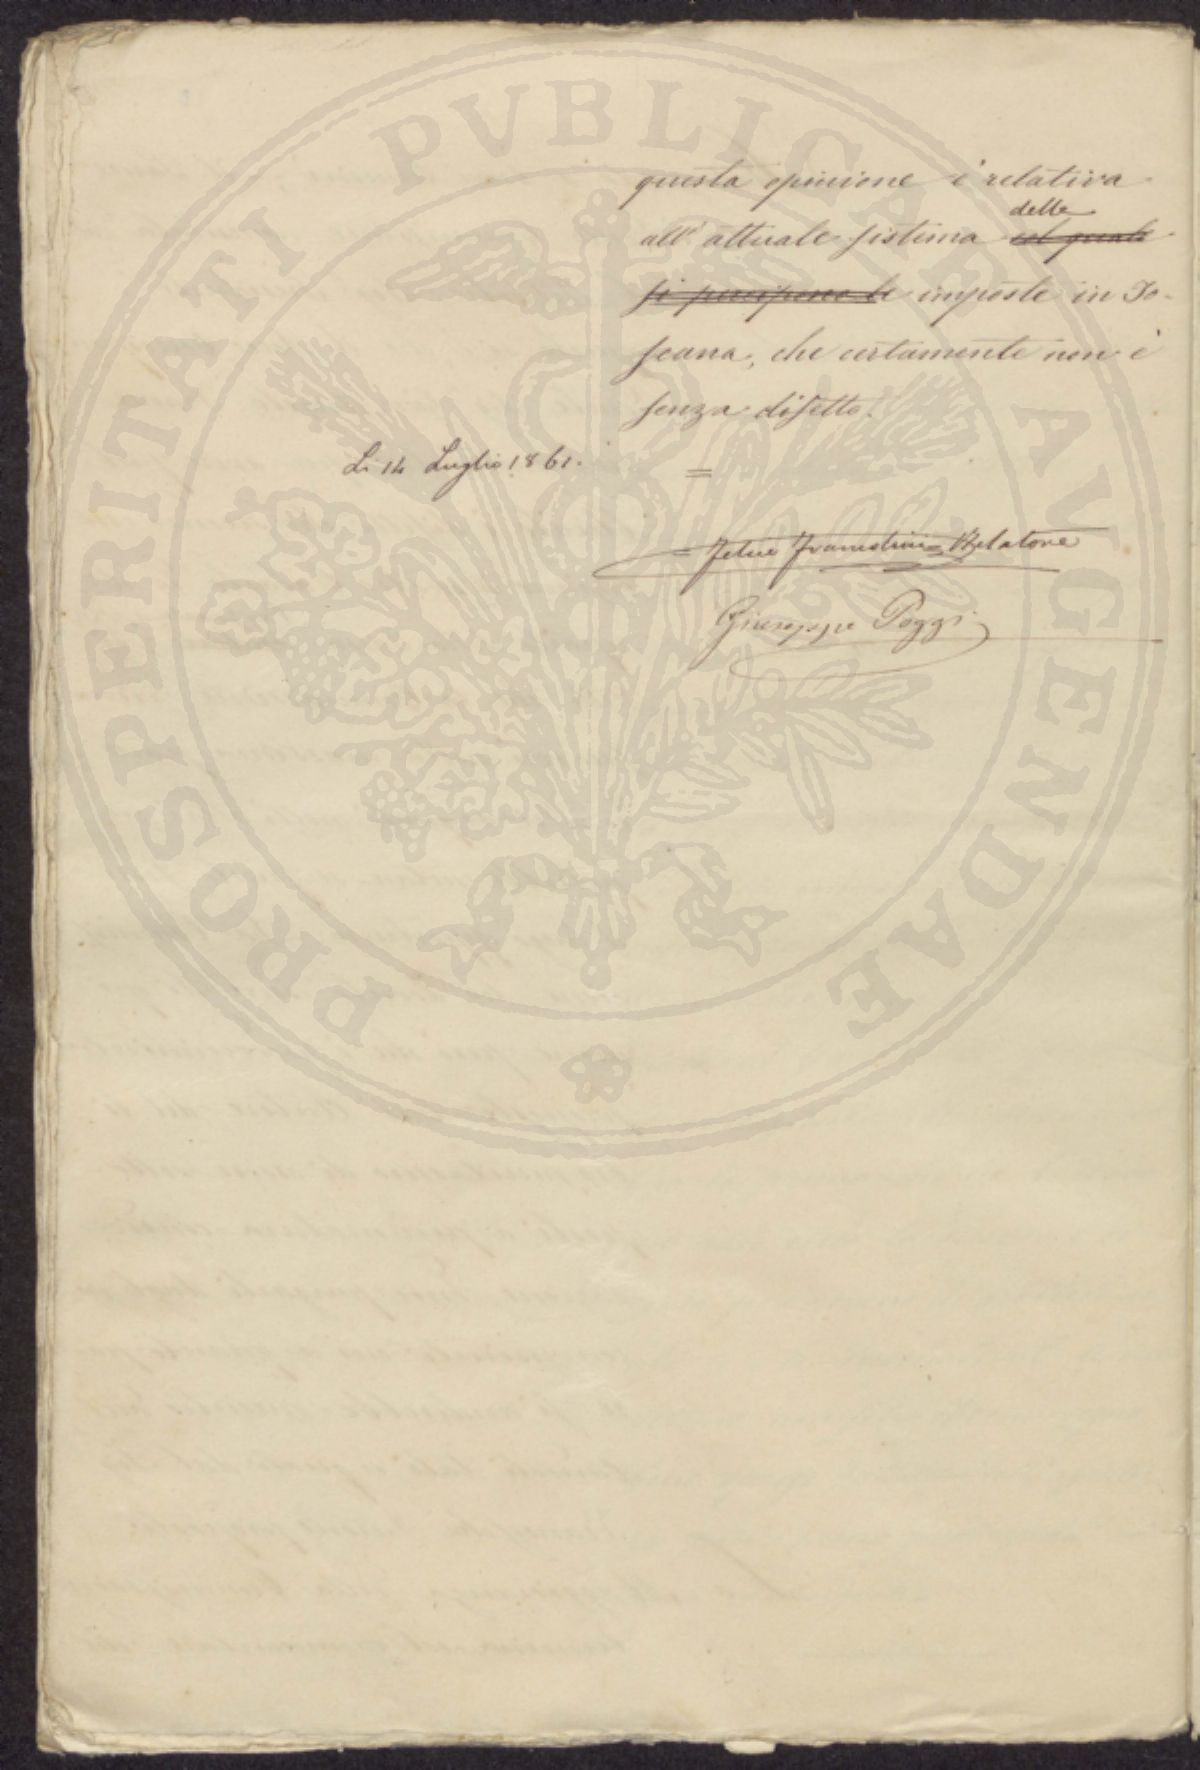 questa opinione è relativa
delle
all'attuale sistema col quale
si percipono le imposte in To-
scana, che certamente non è
senza difetto.
Li 14 Luglio 1861.
=
= Felice Francolini Relatore
Giuseppe Poggi
PROSPERITATI PVBLICAE AVGENDAE